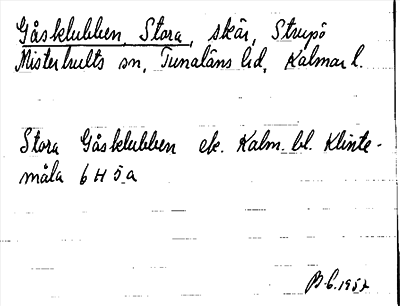 Gåsklubben, Stora, skär, Strupö
Misterhults sn, Tunaläns hd, Kalmar l.
Stora Gåsklubben ek. Kalm. bl. Klinte-
måla 6 H 5 a